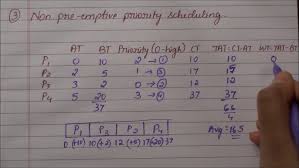 ③ Non pre-emptive priority scheduling
AT BT Priority (0-high) CT TAT: CT-AT WT: TAT-BT
P1 0 10 2 10 10 0
P2 2 5 1 17 15
P3 3 2 0 12
P4 5 20 3 → ④ 37
37 66
4
P1 P3 P2 P4 Avg = 16.5
0 (+10) 10 (+2) 12 (+5) 17 (+20) 37